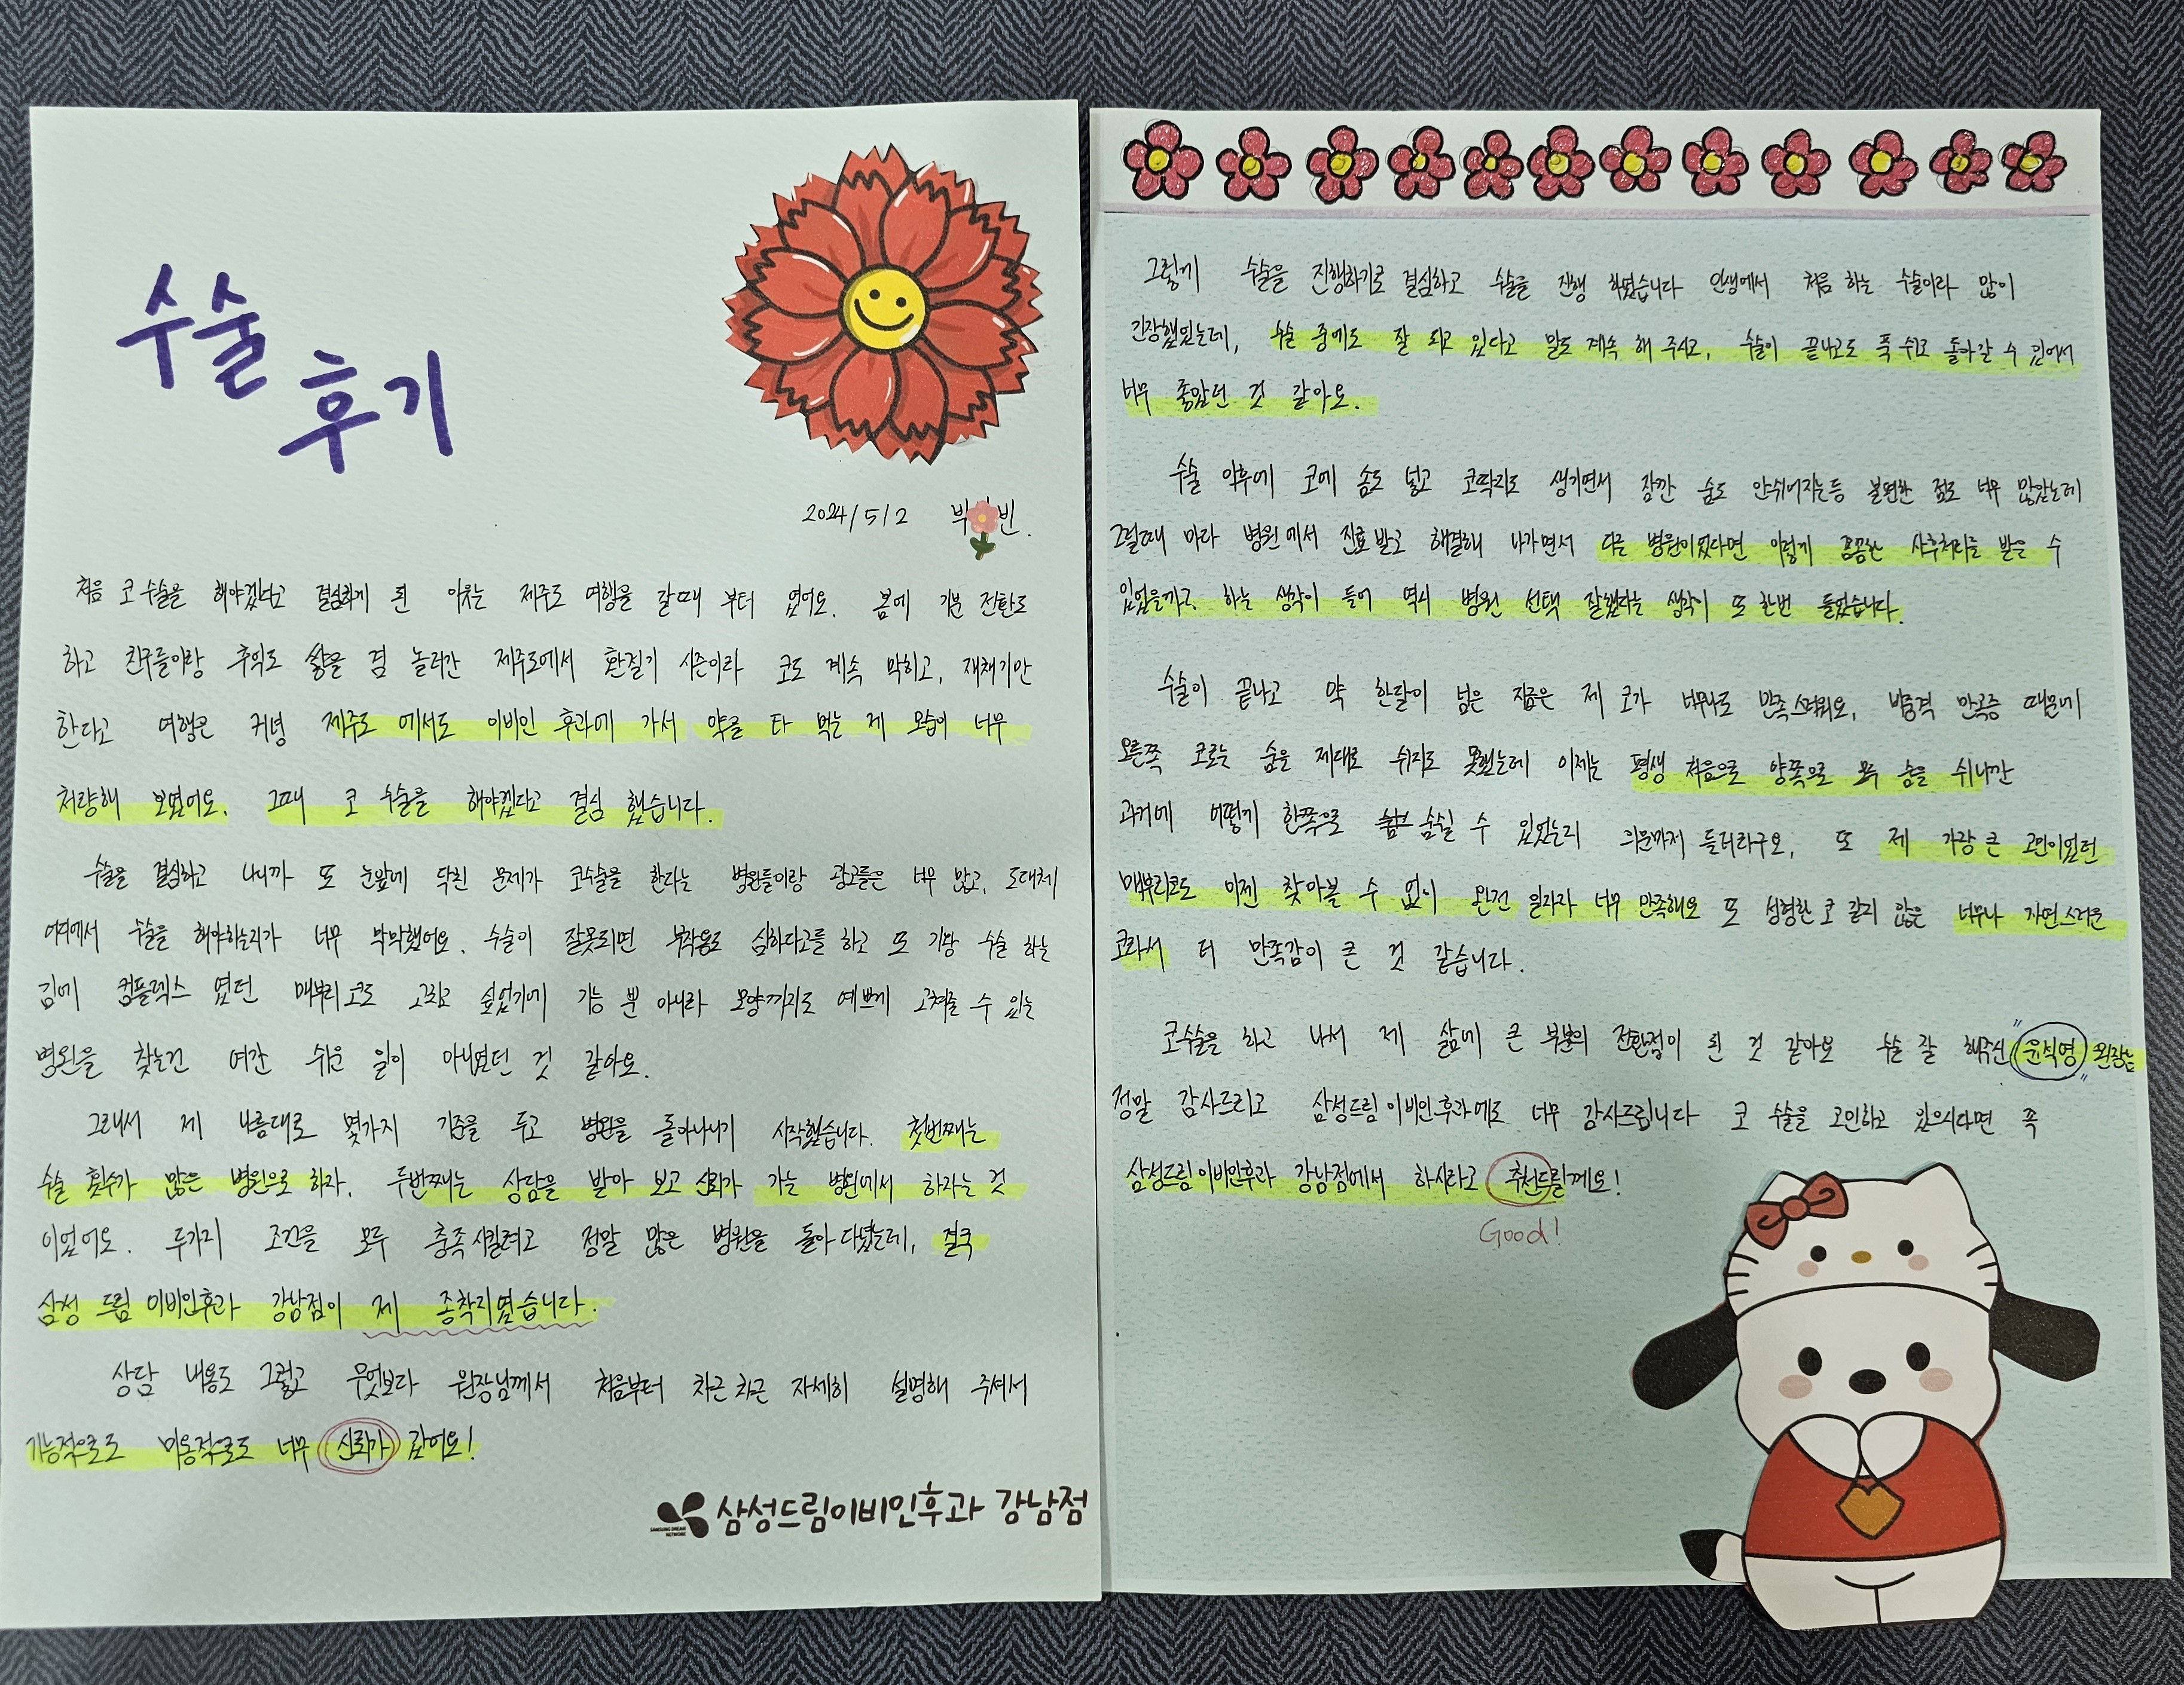 수술
후기
2024/5/2 박 빈.
처음 코 수술을 해야겠다고 결심하게 된 이유는 제주도 여행을 갈때 부터 였어요. 봄에 기분 전환도
하고 친구들이랑 추억도 쌓을 겸 놀러간 제주도에서 환절기 시즌이라 코도 계속 막히고, 재채기만
한다고 여행은 커녕 제주도 에서도 이비인 후과에 가서 약을 타 먹는 제 모습이 너무
처량해 보였어요. 그때 코 수술을 해야겠다고 결심 했습니다.
수술을 결심하고 나니까 또 눈앞에 닥친 문제가 코수술을 한다는 병원들이랑 광고들은 너무 많고, 도대체
어디에서 수술을 해야하는지가 너무 막막했어요. 수술이 잘못되면 부작용도 심하다고들 하고 또 기왕 수술 하는
김에 컴플렉스 였던 매부리코도 고치고 싶었기에 기능 뿐 아니라 모양까지도 예쁘게 고쳐줄 수 있는
병원을 찾는건 여간 쉬운 일이 아니였던 것 같아요.
그래서 제 나름대로 몇가지 기준을 두고 병원을 돌아다니기 시작했습니다. 첫번째는
수술 횟수가 많은 병원으로 하자. 두번째는 상담을 받아 보고 신뢰가 가는 병원에서 하자는 것
이었어요. 두가지 조건을 모두 충족시킬려고 정말 많은 병원을 돌아 다녔는데, 결국
삼성 드림 이비인후과 강남점이 제 종착지였습니다.
상담 내용도 그렇고 무엇보다 원장님께서 처음부터 차근 차근 자세히 설명해 주셔서
기능적으로도 미용적으로도 너무 신뢰가 갔어요!
SAMSUNG DREAM NETWORK 삼성드림이비인후과 강남점
그렇게 수술을 진행하기로 결심하고 수술을 진행 하였습니다 인생에서 처음 하는 수술이라 많이
긴장했었는데, 수술 중에도 잘 되고 있다고 말도 계속 해 주시고, 수술이 끝나고도 푹 쉬고 돌아갈 수 있어서
너무 좋았던 것 같아요.
수술 이후에 코에 솜도 넣고 코딱지도 생기면서 잠깐 숨도 안쉬어지는등 불편한 점도 너무 많았는데
그럴때 마다 병원에서 진료받고 해결해 나가면서 다른 병원이었다면 이렇게 꼼꼼한 사후처리를 받을 수
있었을까? 하는 생각이 들어 역시 병원 선택 잘했다는 생각이 또 한번 들었습니다.
수술이 끝나고 약 한달이 넘은 지금은 제 코가 너무나도 만족스러워요. 비중격 만곡증 때문에
오른쪽 코로는 숨을 제대로 쉬지도 못했는데 이제는 평생 처음으로 양쪽으로 모두 숨을 쉬니깐
과거에 어떻게 한쪽으로 숨쉴 수 있었는지 의문까지 들더라구요, 또 제 가장 큰 고민이었던
매부리코도 이젠 찾아볼 수 없이 완전 일자라 너무 만족해요 또 성형한 코 같지 않은 너무나 자연스러운
코라서 더 만족감이 큰 것 같습니다.
코수술을 하고 나서 제 삶에 큰 부분의 전환점이 된 것 같아요 수술 잘 해주신 "윤식영" 원장님
정말 감사드리고 삼성드림 이비인후과에도 너무 감사드립니다 코 수술을 고민하고 있으시다면 꼭
삼성드림 이비인후과 강남점에서 하시라고 추천드릴게요!
Good!